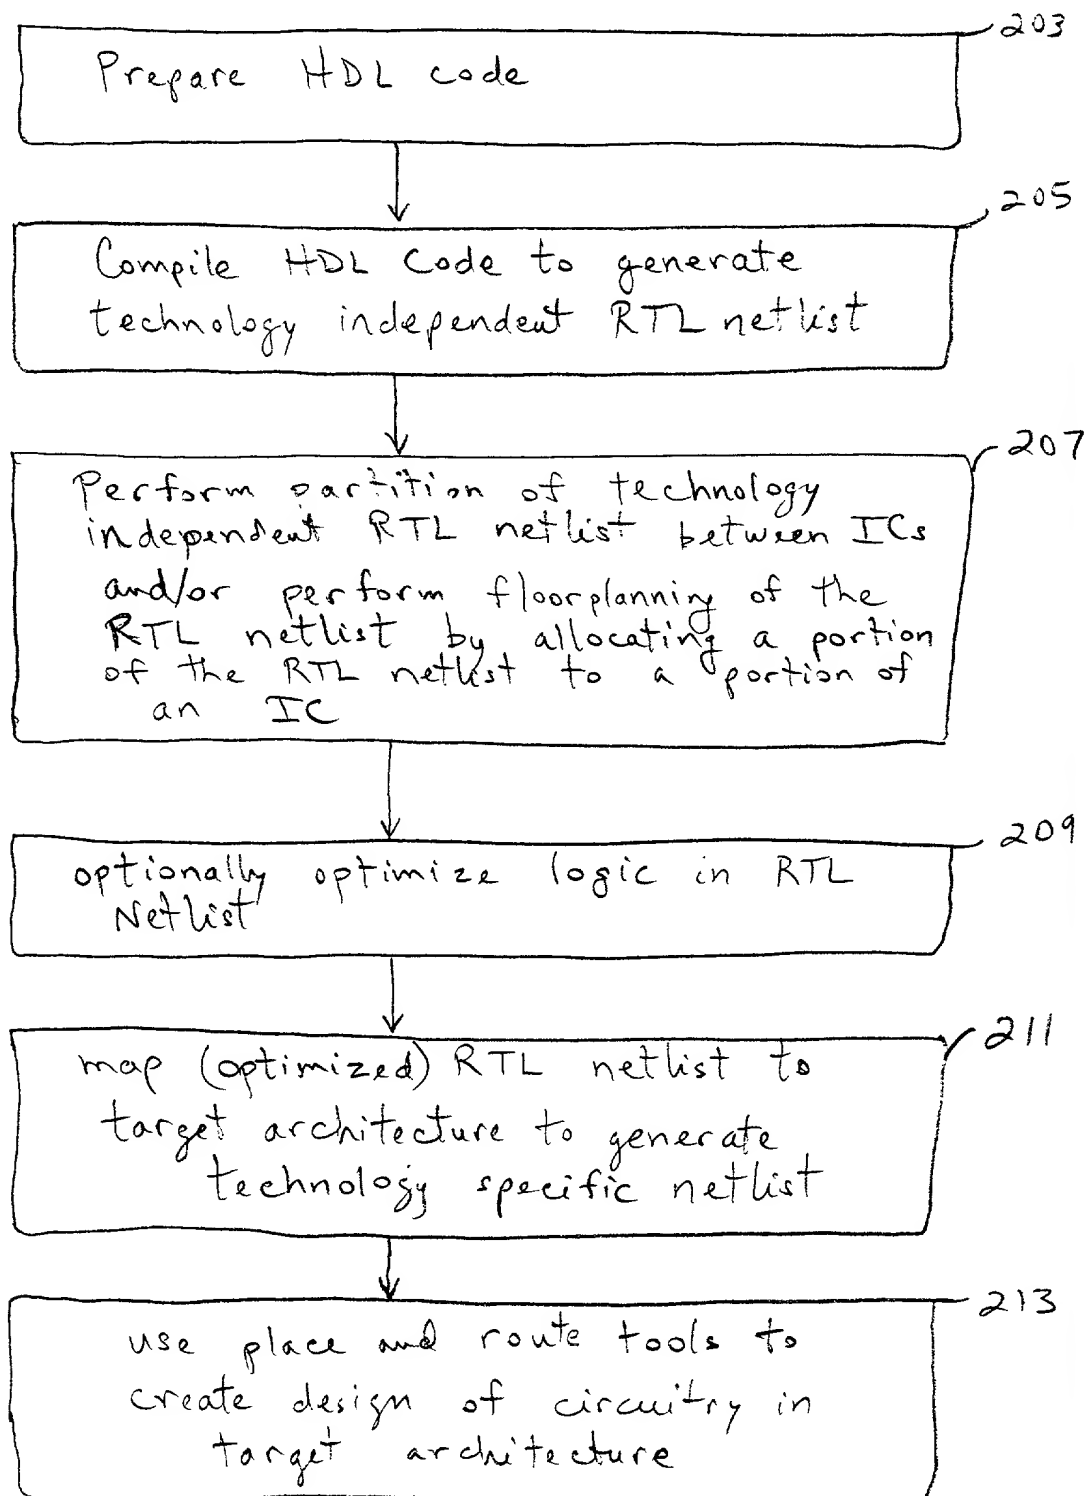 203
Prepare HDL code
205
Compile HDL code to generate
technology independent RTL netlist
207
Perform partition of technology
independent RTL netlist between ICs
and/or perform floorplanning of the
RTL netlist by allocating a portion
of the RTL netlist to a portion of
an IC
209
optionally optimize logic in RTL
Netlist
211
map (optimized) RTL netlist to
target architecture to generate
technology specific netlist
213
use place and route tools to
create design of circuitry in
target architecture